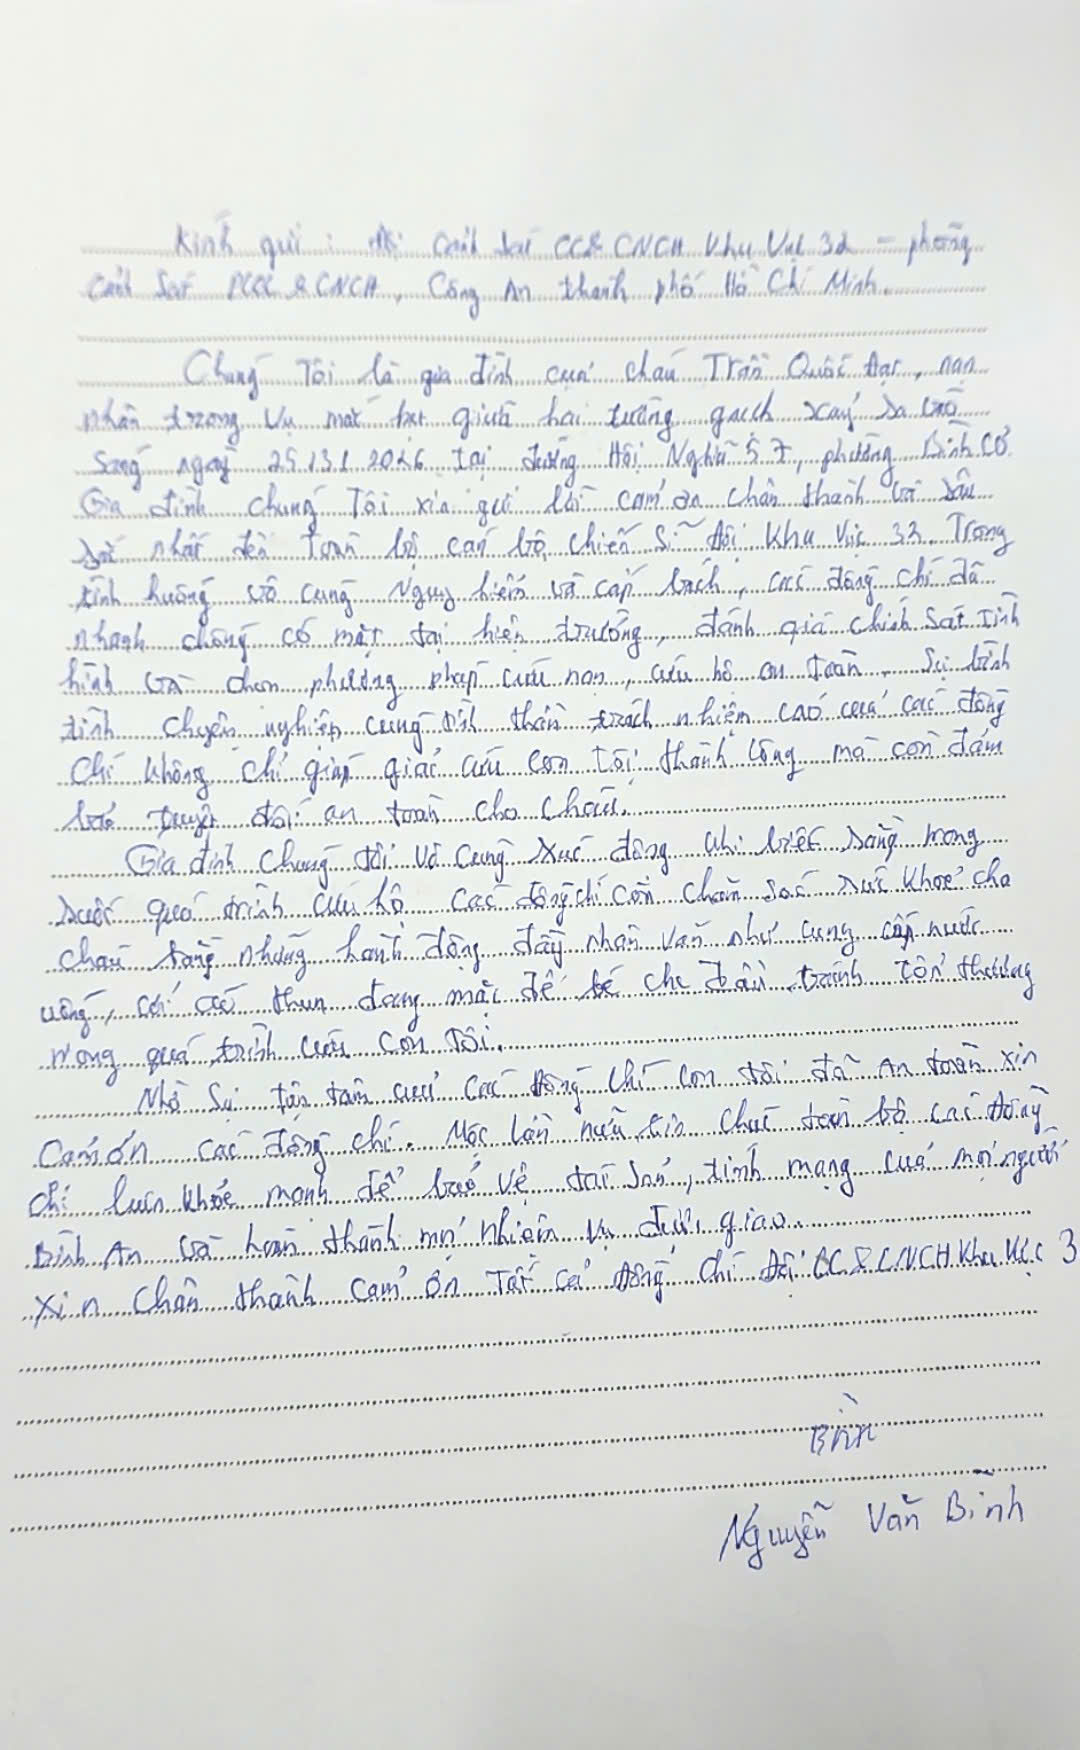 Kính gửi: Đội Cảnh Sát CC&CNCH Khu Vực 32 - phòng
Cảnh Sát PCCC &CNCH, Công An thành phố Hồ Chí Minh.
Chúng Tôi là gia đình của cháu Trần Quốc Đạt, nạn
nhân trong vụ mắt kẹt giữa hai tường gạch xảy ra vào
sáng ngày 25/3/2026 tại đường Hội Nghĩa 57, phường Bình Cơ.
Gia đình chúng Tôi xin gửi lời cảm ơn chân thành và sâu
sắc nhất đến toàn bộ cán bộ, chiến sĩ Đội Khu Vực 32. Trong
tình huống vô cùng nguy hiểm và cấp bách, các đồng chí đã
nhanh chóng có mặt tại hiện trường, đánh giá chính sát tình
hình và chọn phương pháp cứu nạn, cứu hộ an toàn. Sự bình
tĩnh chuyên nghiệp cùng tinh thần trách nhiệm cao của các đồng
chí không chỉ giúp giải cứu con tôi thành công mà còn đảm
bảo tuyệt đối an toàn cho cháu.
Gia đình chúng tôi vô cùng xúc động khi biết rằng trong
suốt quá trình cứu hộ các đồng chí còn chăm sóc sức khoẻ cho
cháu bằng những hành động đầy nhân văn như cung cấp nước
uống, cởi áo thun đang mặc để bé che đầu tránh tổn thương
trong quá trình cứu con tôi.
Nhờ sự tận tâm của các đồng chí con tôi đã an toàn xin
cảm ơn các đồng chí. Một lần nữa xin chúc toàn bộ các đồng
chí luôn khỏe mạnh để bảo vệ tài sản, tính mạng của mọi người
Bình An và hoàn thành mọi nhiệm vụ được giao.
Xin chân thành cảm ơn Tất cả đồng chí Đội CC&CNCH Khu Vực 3
Bình
Nguyễn Văn Bình